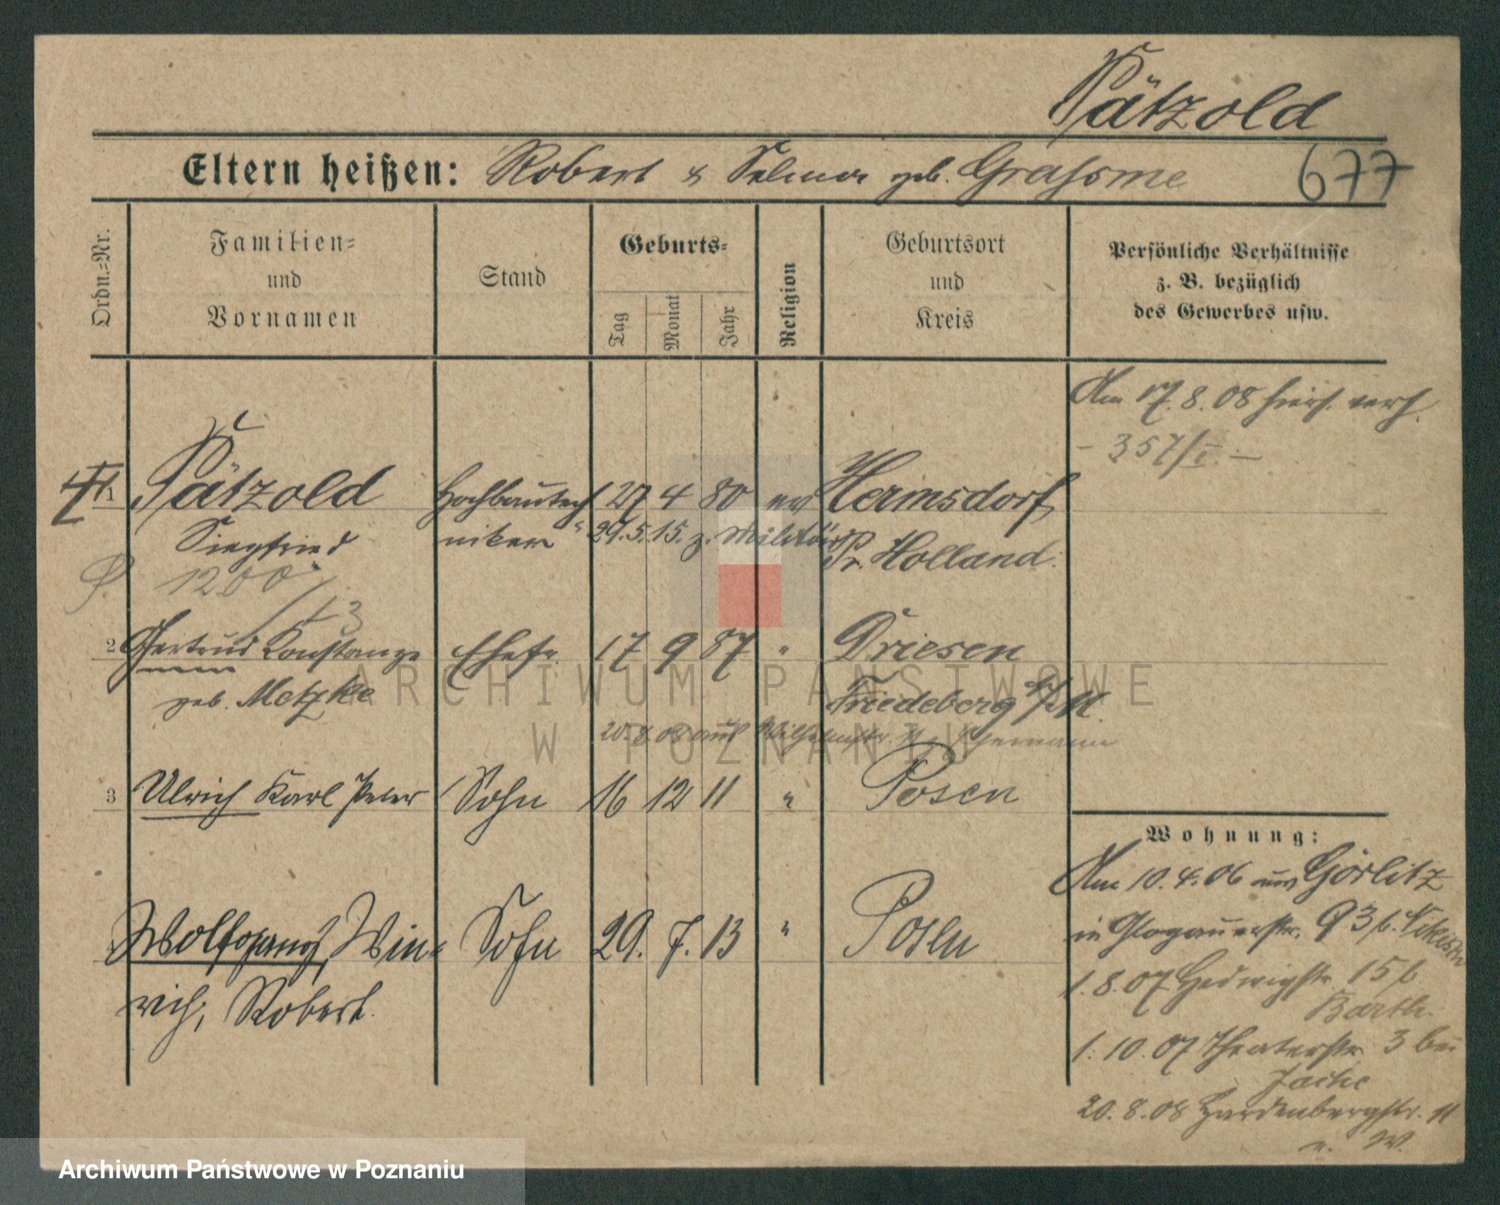 Pätzold
Eltern heißen: Robert & Selma geb. Grassme 677
Ordn.=Nr.
Familien=
und
Vornamen
Stand
Geburts=
Tag
Monat
Jahr
Religion
Geburtsort
und
Kreis
Persönliche Verhältnisse
z. B. bezüglich
des Gewerbes usw.
Am 17. 8. 08 hier verh.
- 357/I. -
1 Pätzold Hochbautech 27 4 80 ev Hermsdorf
Siegfried niker 29. 5. 15. z. Militär Pr. Holland
P. 1200
2 Gertrud Konstanze Ehefr. 17 9 87 " Driesen
geb. Metzke Friedeberg N/M.
20. 8. 08 aus Wilhelmstr.
3 Ulrich Karl Peter Sohn 16 12 11 " Posen
Wolfgang, Win= Sohn 29. 7. 13 " Posen
rich, Robert.
Wohnung:
Am 10. 4. 06 aus Görlitz
in Glogauerstr. 93 b.
1. 8. 07 Hedwigstr. 15 b
Barth.
1. 10. 07 Theaterstr. 3 bei
20. 8. 08 Hardenbergstr. 11
u. W.
ARCHIWUM PAŃSTWOWE
W POZNANIU
Archiwum Państwowe w Poznaniu